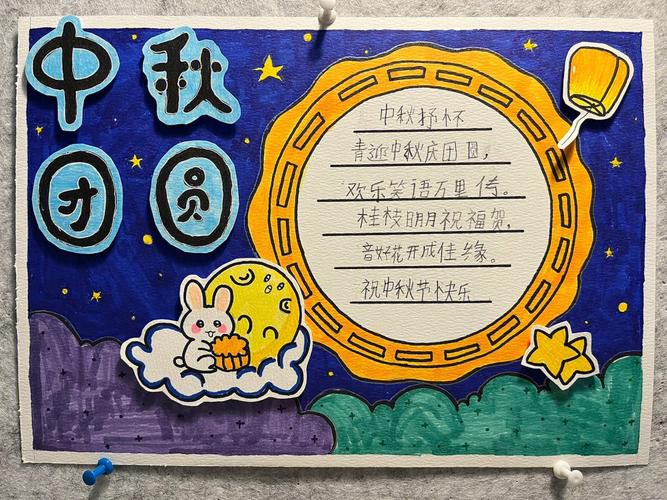 中秋
团圆
中秋抒怀
喜迎中秋庆团圆,
欢乐笑语万里传。
桂枝明月祝福贺,
音好花开成佳缘。
祝中秋节快乐